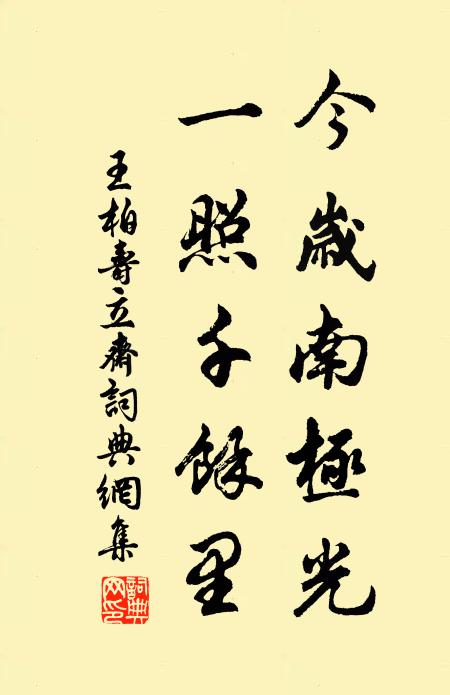 今歲南極光
一照千餘里
王柏壽立齋詞典網集
詞典網印